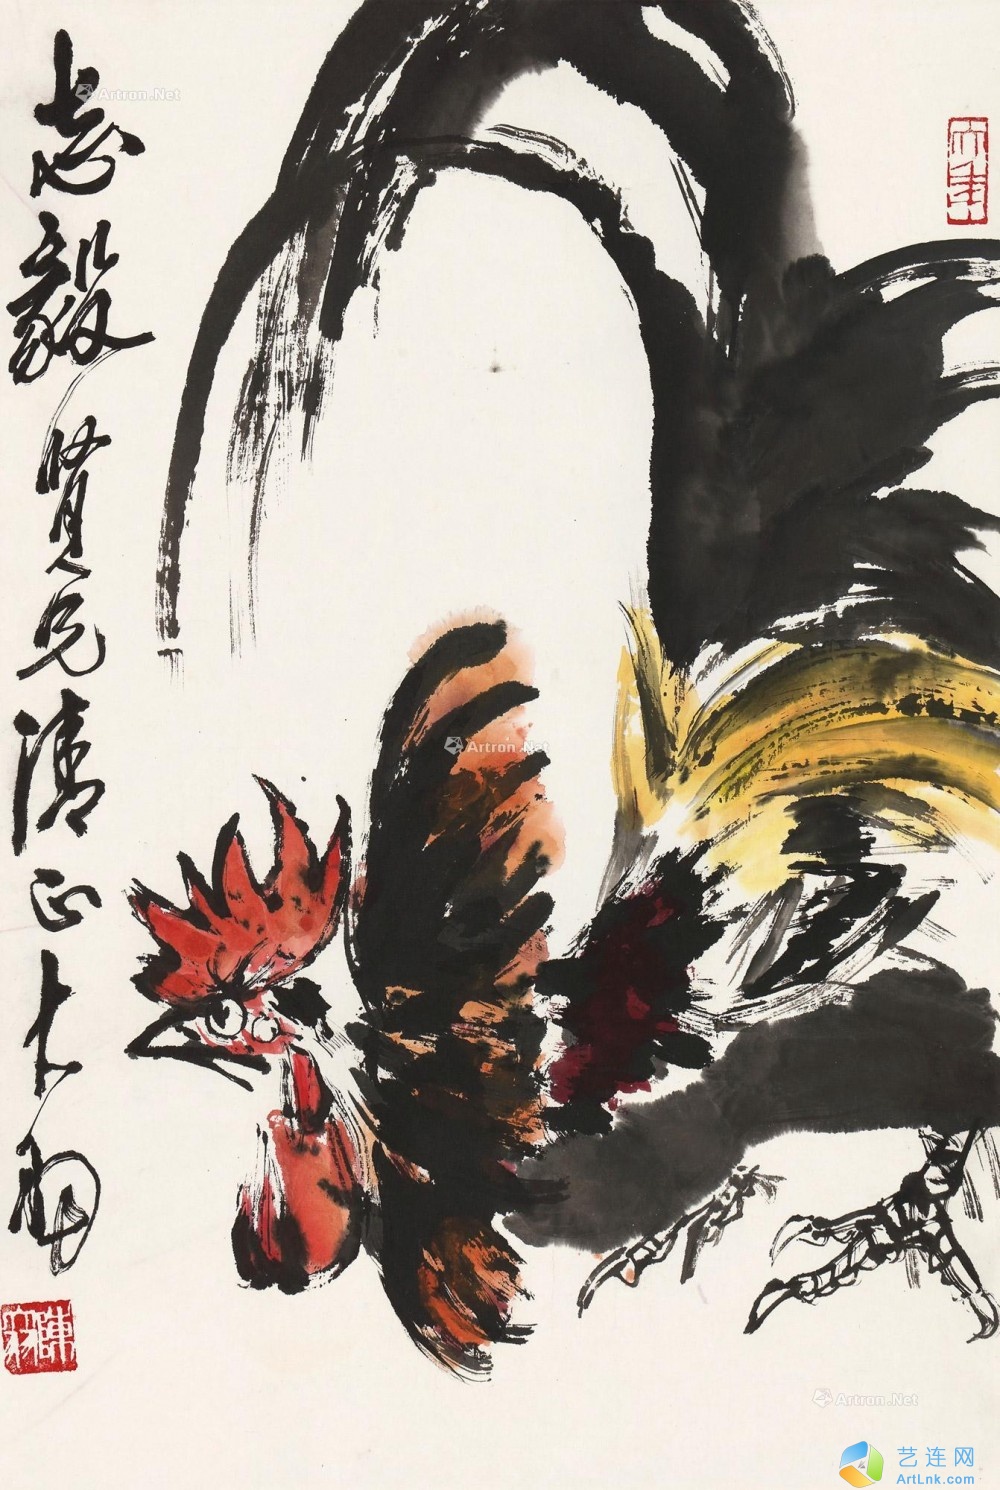 志毅賢兄清正大羽
Artron.Net
Artron.Net
Artron.Net
艺连网
ArtLnk.com